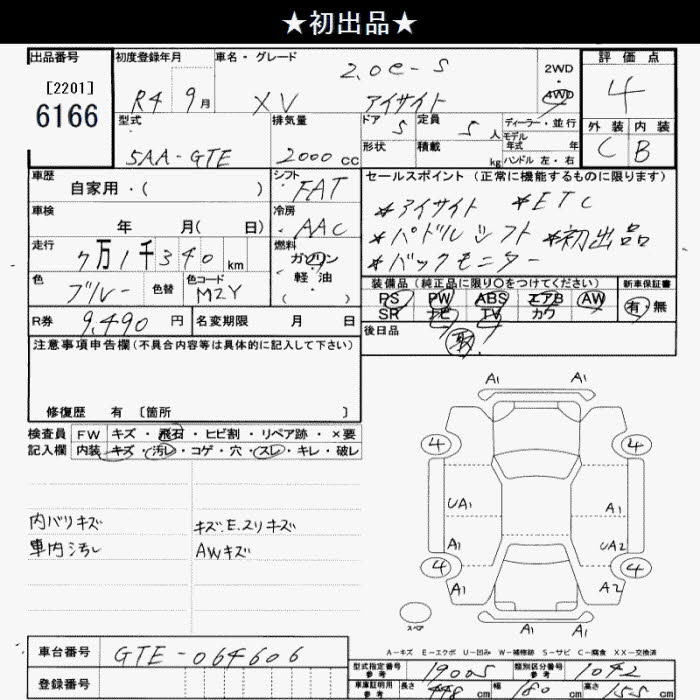 ★初出品★
出品番号 初度登録年月 車名・グレード 評価点
[2201]
6166
R4 9月 XV 2.0e-S アイサイト
2WD・4WD
4
外装 内装
C B
型式 排気量 ドア 定員 ディーラー・並行
5AA-GTE 2000cc 5 5人
モデル年式 年
形状 積載 kg ハンドル 左・右
車歴 自家用・( )
シフト FAT
セールスポイント(正常に機能するものに限ります)
*アイサイト *ETC
*パドルシフト *初出品
*バックモニター
車検 年 月( 日)
冷房 AAC
走行 7万1千340km
燃料 ガソリン 軽油 ( . )
色 ブルー 色替 色コード M2Y
装備品(純正品に限り○をつけてください) 新車保証書
PS PW ABS エアB AW 有・無
SR ナビ TV カワ
R券 9,490円 名変期限 月 日
後日品 取
注意事項申告欄(不具合内容等は具体的に記入して下さい)
修復歴 有 [箇所 ]
検査員記入欄 FW キズ・飛石・ヒビ割・リペア跡・×要
内装 キズ・汚レ・コゲ・穴・スレ・キレ・破レ
内バリキズ キズ.E.スリキズ
車内汚レ AWキズ
A1 A1
4 4
UA1 A1
A1 UA2
4 4
A1 A2
A1 A1
スペア
A-キズ E-エクボ U-凹み W-補修跡 S-サビ C-腐食 XX-交換済
車台番号 GTE-064606
登録番号
型式指定番号 参考 19005 類別区分番号 参考 1042
車庫証明用 参考 長さ 448cm 幅 180cm 高さ 155cm